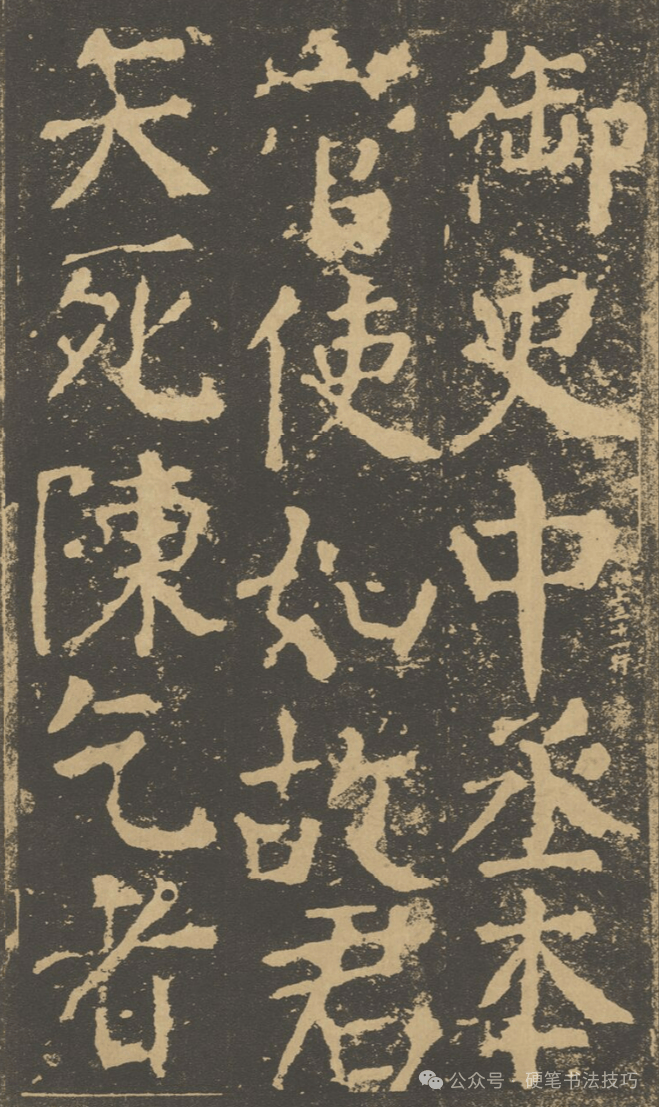 御史中丞本
官使如故君
矢死陳乞者
公众号 · 硬笔书法技巧